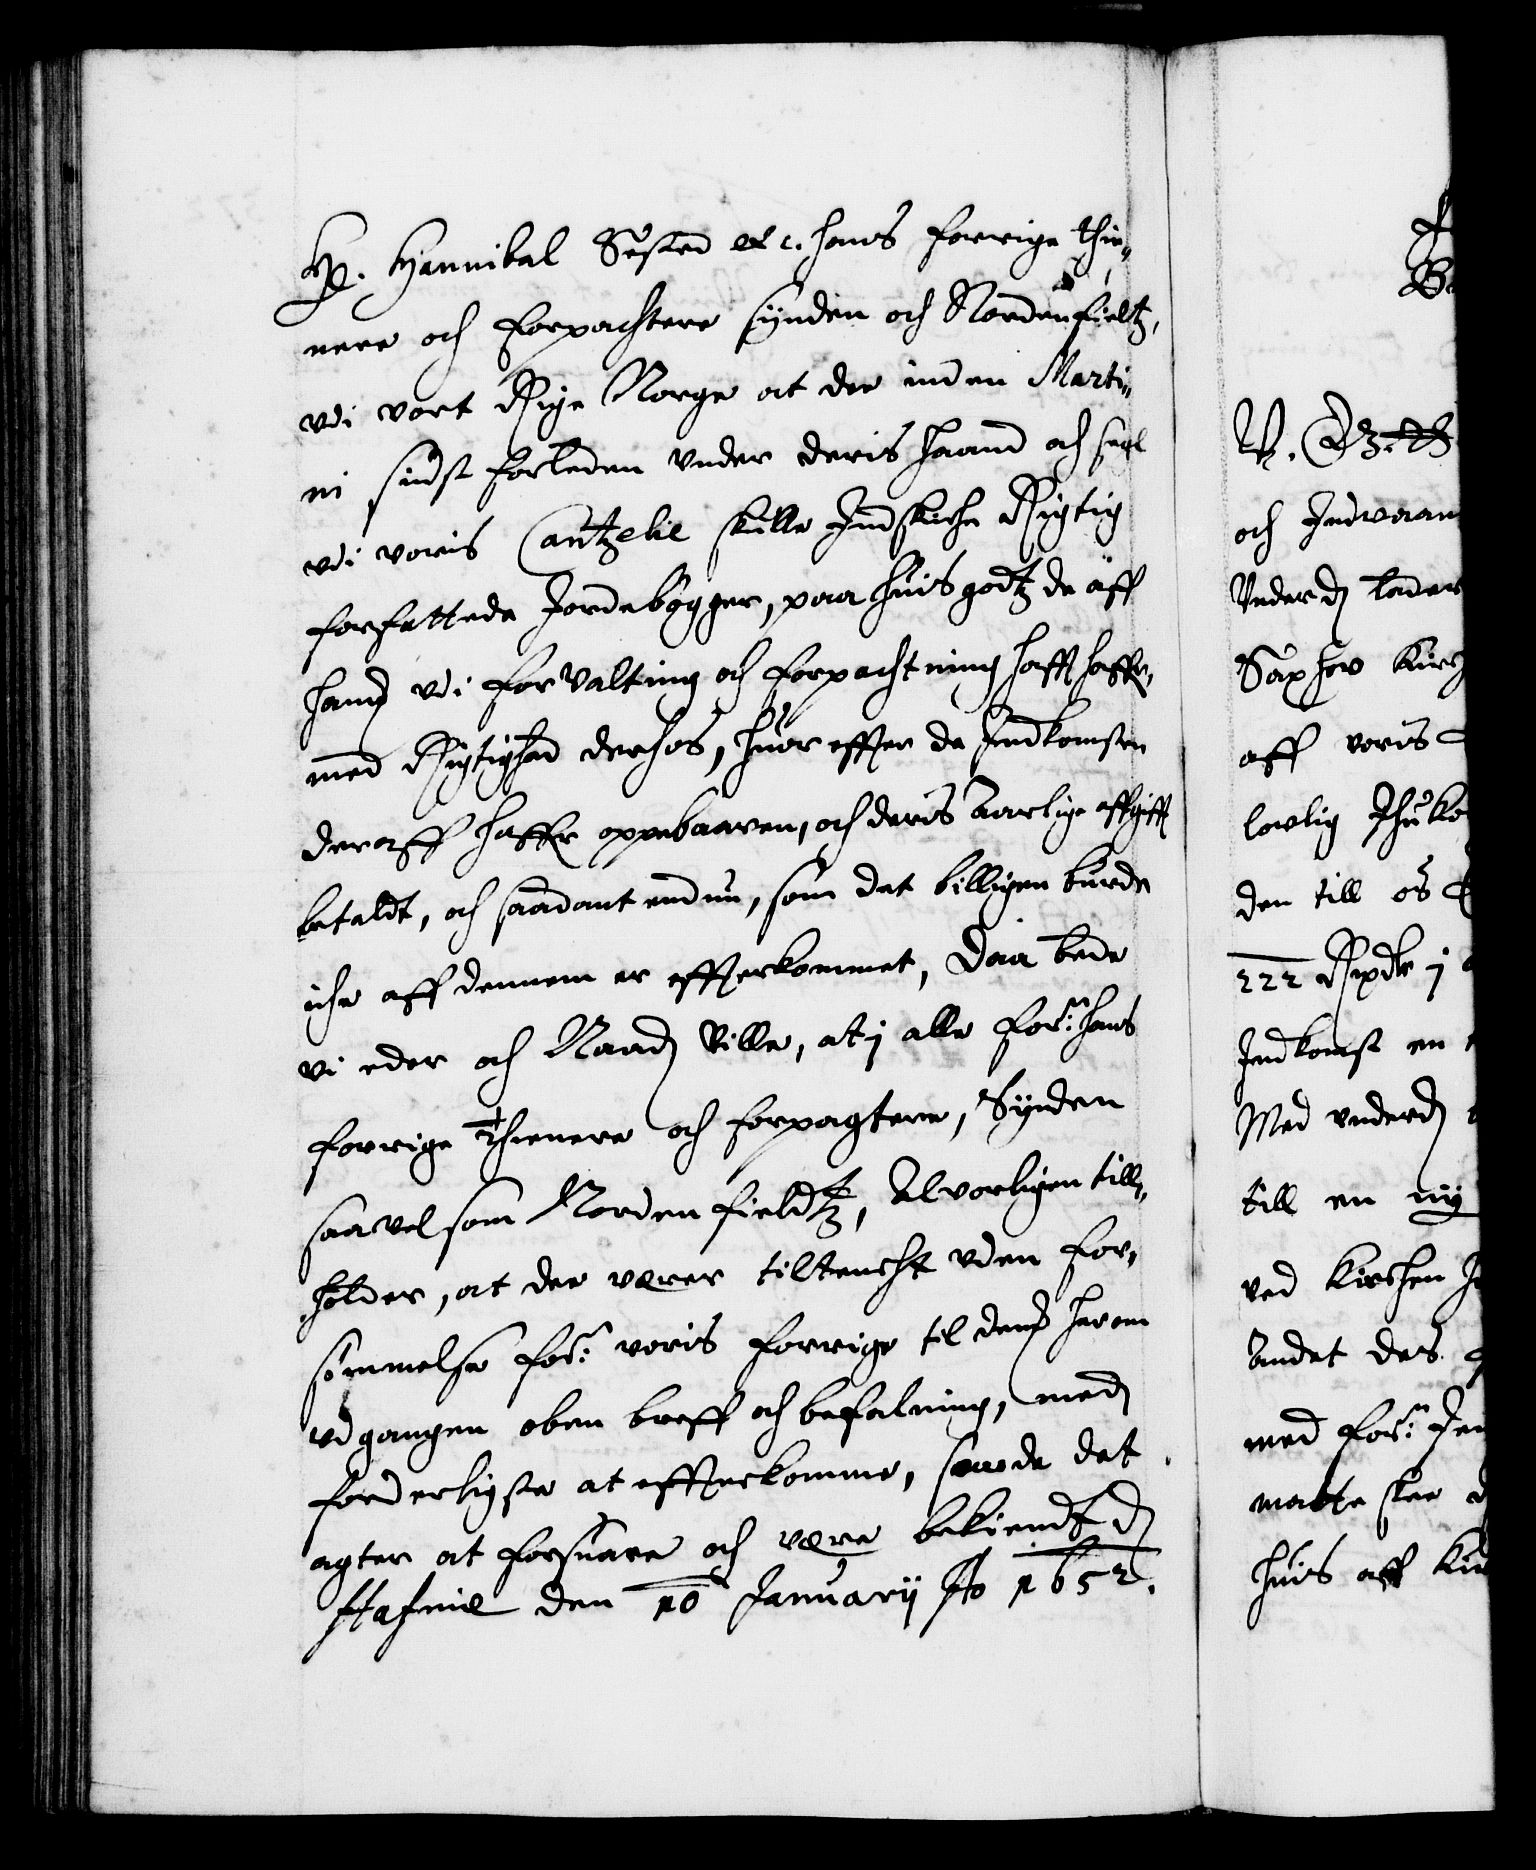 H. Hannibal Sested etc. hans forrige thie-
nere och forpachtere synden och Nordenfieltz,
vdi vort Rige Norge at de inden Marti-
ni sidst forleden vnder deris haand och segl
vdi voris Cantzelie skulle Indskiche Rigtig
forfattede Jordebøgger, paa huis godtz de aff
ham vdi forvalting och forpachtning hafft haffr,
med Rigtighed derhos, huor effter de Indkomsten
deraff haffr oppebaaren, och deris Aarlige affgifft
betaldt, och saadant endnu, som det billigen burde
iche aff dennem er effterkommet, Daa bede
vi eder och Naad: Ville, at i alle forne hans
forrige Thienere och forpagtere, Synden
saavelsom Nordenfieldtz, Alvorligen till-
holder, at de værer tiltencht vden for-
sømmelse forne voris forrige til dend herom
vdgangen oben breff och befalning, med
forderligste at effterkomme, saa de det
agter at forsuare och være bekiendt D
Hafniæ den 10 Januarij Ao 1652.
V. G. T.
och Indvaan
Vnder d: lader
Saxhov Kirch
aff voris
lovlig Thuko
den till os
222 Rixdlr i
Indkomst en
Med vnderd:
till en ny
ved Kirchen
Andet des
med forne
motte skee
huis aff Kir